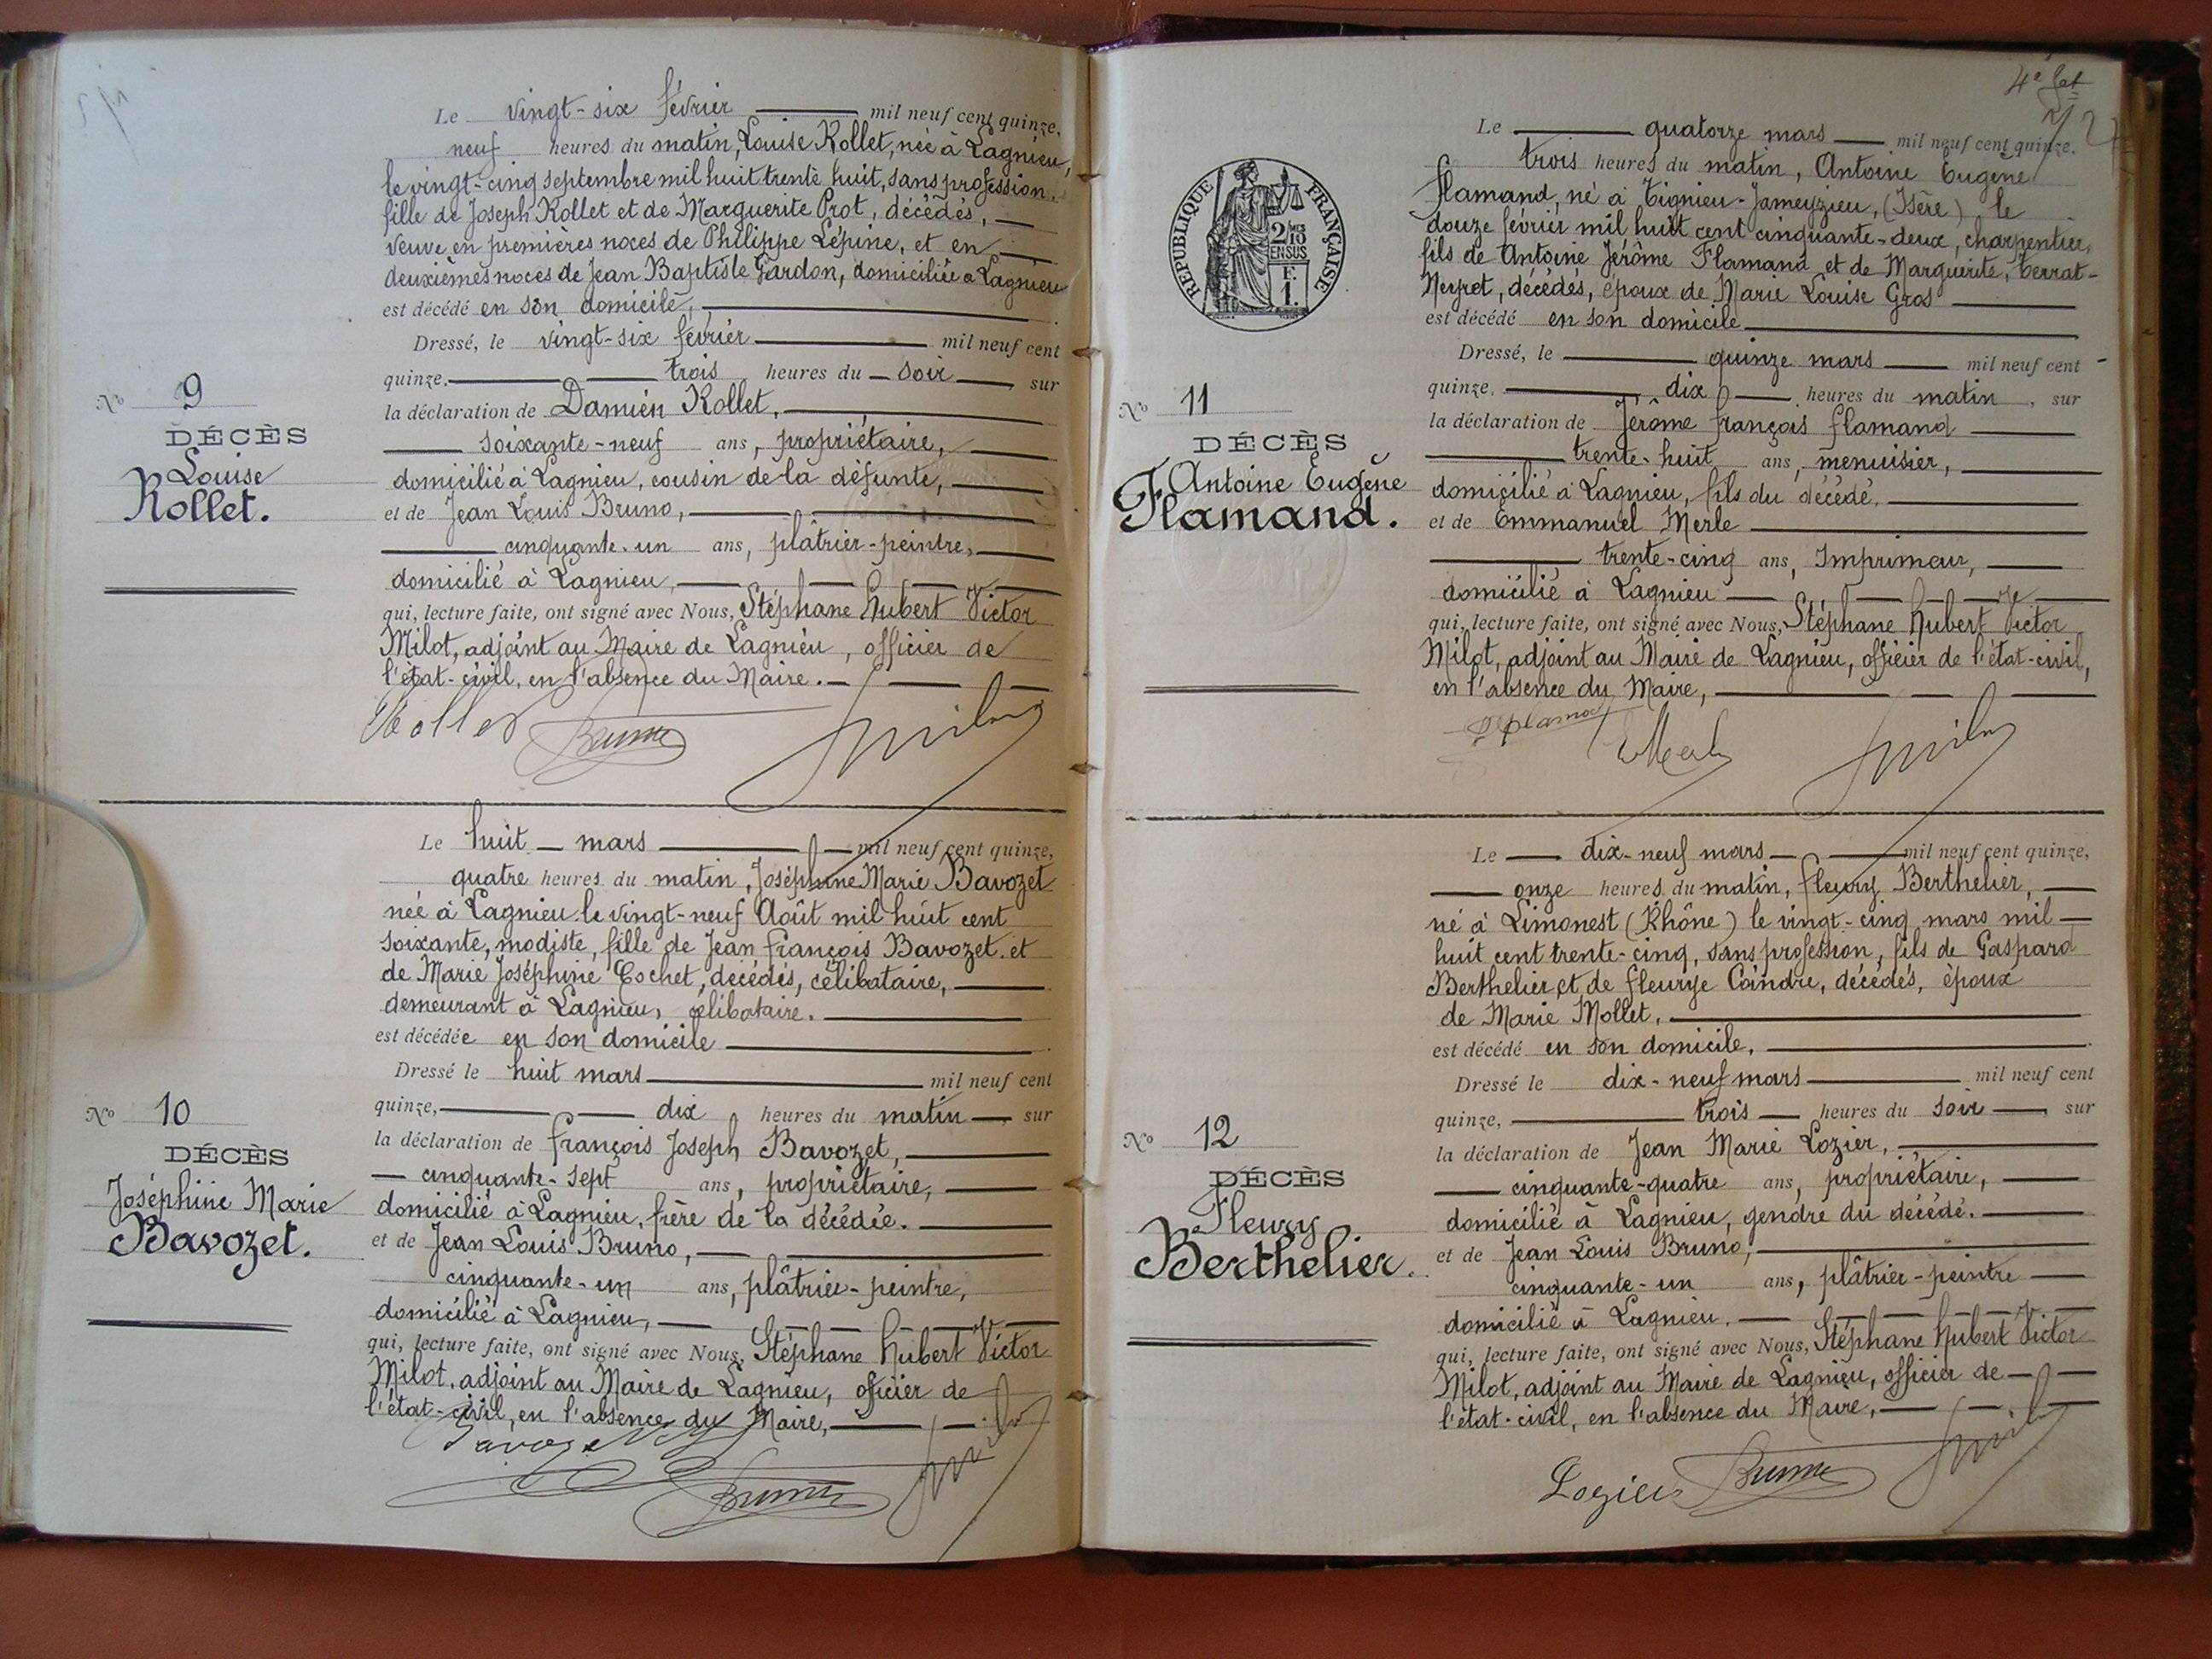 Le vingt-six février mil neuf cent quinze,
neuf heures du matin, Louise Rollet, née à Lagnieu,
le vingt-cinq septembre mil huit trente huit, sans profession,
fille de Joseph Rollet et de Marguerite Prot, décédés,
veuve en premières noces de Philippe Lépine, et en
deuxièmes noces de Jean Baptiste Gardon, domiciliée à Lagnieu
est décédé en son domicile,
Dressé, le vingt-six février mil neuf cent
quinze. trois heures du soir sur
la déclaration de Damien Rollet,
soixante-neuf ans, propriétaire,
domicilié à Lagnieu, cousin de la défunte,
et de Jean Louis Bruno,
cinquante-un ans, plâtrier-peintre,
domicilié à Lagnieu,
qui, lecture faite, ont signé avec Nous, Stéphane Hubert Victor
Milot, adjoint au Maire de Lagnieu, officier de
l'état-civil, en l'absence du Maire.
Rollet Bruno Milot
No 9
DÉCÈS
Louise
Rollet.
Le huit mars mil neuf cent quinze,
quatre heures du matin, Joséphine Marie Bavozet
née à Lagnieu le vingt-neuf Août mil huit cent
soixante, modiste, fille de Jean François Bavozet et
de Marie Joséphine Cochet, décédés, célibataire,
demeurant à Lagnieu, célibataire.
est décédée en son domicile
Dressé le huit mars mil neuf cent
quinze, dix heures du matin sur
la déclaration de François Joseph Bavozet,
cinquante-sept ans, propriétaire,
domicilié à Lagnieu, frère de la décédée.
et de Jean Louis Bruno,
cinquante-un ans, plâtrier-peintre,
domicilié à Lagnieu,
qui, lecture faite, ont signé avec Nous, Stéphane Hubert Victor
Milot, adjoint au Maire de Lagnieu, officier de
l'état-civil, en l'absence du Maire,
Bavozet Bruno Milot
No 10
DÉCÈS
Joséphine Marie
Bavozet.
4e fet
Le quatorze mars mil neuf cent quinze.
trois heures du matin, Antoine Eugène
Flamand, né à Tignieu-Jameyzieu, (Isère) le
douze février mil huit cent cinquante-deux, charpentier,
fils de Antoine Jérôme Flamand et de Marguerite, Terrat-
Neyret, décédés, époux de Marie Louise Gros
est décédé en son domicile
Dressé, le quinze mars mil neuf cent
quinze, dix heures du matin, sur
la déclaration de Jérôme François Flamand
trente-huit ans, menuisier,
domicilié à Lagnieu, fils du décédé.
et de Emmanuel Merle
trente-cinq ans, Imprimeur,
domicilié à Lagnieu
qui, lecture faite, ont signé avec Nous, Stéphane Hubert Victor
Milot, adjoint au Maire de Lagnieu, officier de l'état-civil,
en l'absence du Maire,
Flamand EMerle Milot
RÉPUBLIQUE FRANÇAISE
2/10 MES
EN SUS
F.
1.
No 11
DÉCÈS
Antoine Eugène
Flamand.
Le dix-neuf mars mil neuf cent quinze,
onze heures du matin, Fleury Berthelier,
né à Limonest (Rhône) le vingt-cinq mars mil
huit cent trente-cinq, sans profession, fils de Gaspard
Berthelier et de Fleurye Coindre, décédés, époux
de Marie Mollet.
est décédé en son domicile.
Dressé le dix-neuf mars mil neuf cent
quinze, trois heures du soir sur
la déclaration de Jean Marie Lozier,
cinquante-quatre ans, propriétaire,
domicilié à Lagnieu, gendre du décédé.
et de Jean Louis Bruno,
cinquante-un ans, plâtrier-peintre
domicilié à Lagnieu.
qui, lecture faite, ont signé avec Nous, Stéphane Hubert Victor
Milot, adjoint au Maire de Lagnieu, officier de
l'état-civil, en l'absence du Maire,
Lozier Bruno Milot
No 12
DÉCÈS
Fleury
Berthelier.